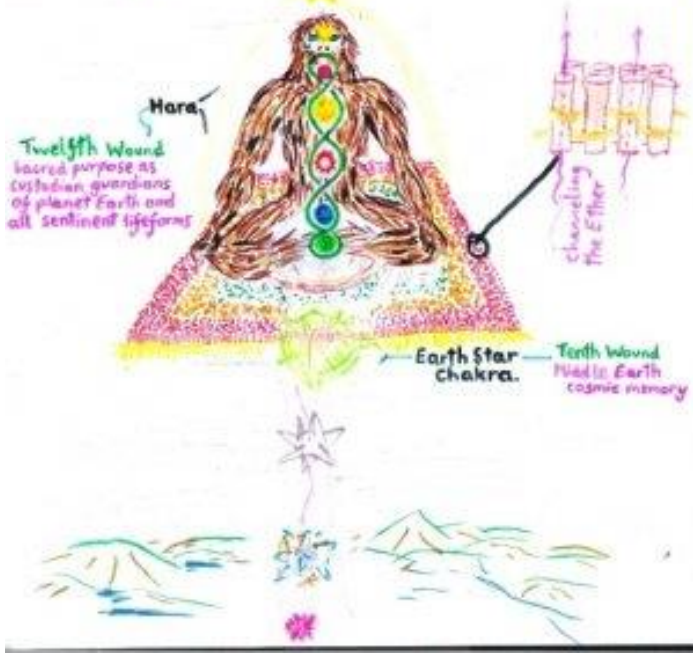 Hara
Twelfth Wound
Sacred purpose as
custodian guardians
of planet Earth and
all sentient lifeforms
channeling
the Ether
Earth Star
Chakra.
Tenth Wound
Middle Earth
cosmic memory